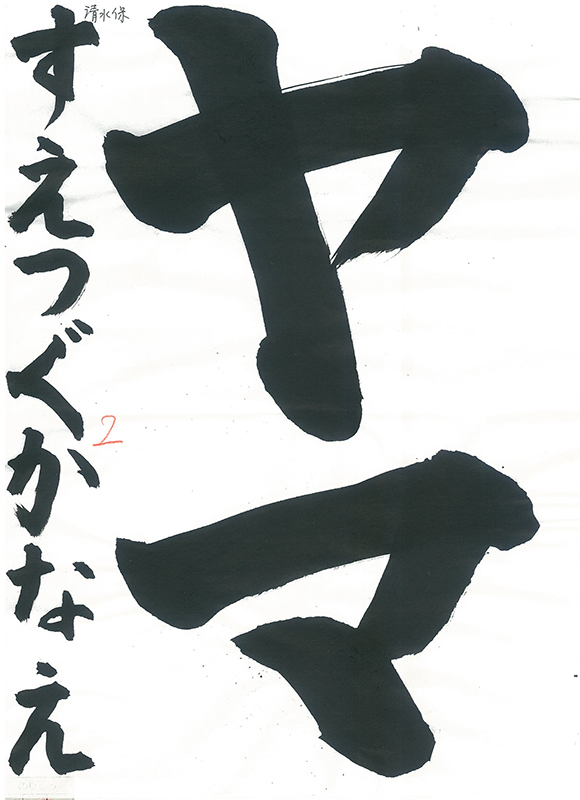 ヤマ
すえつぐかなえ
清水保
2